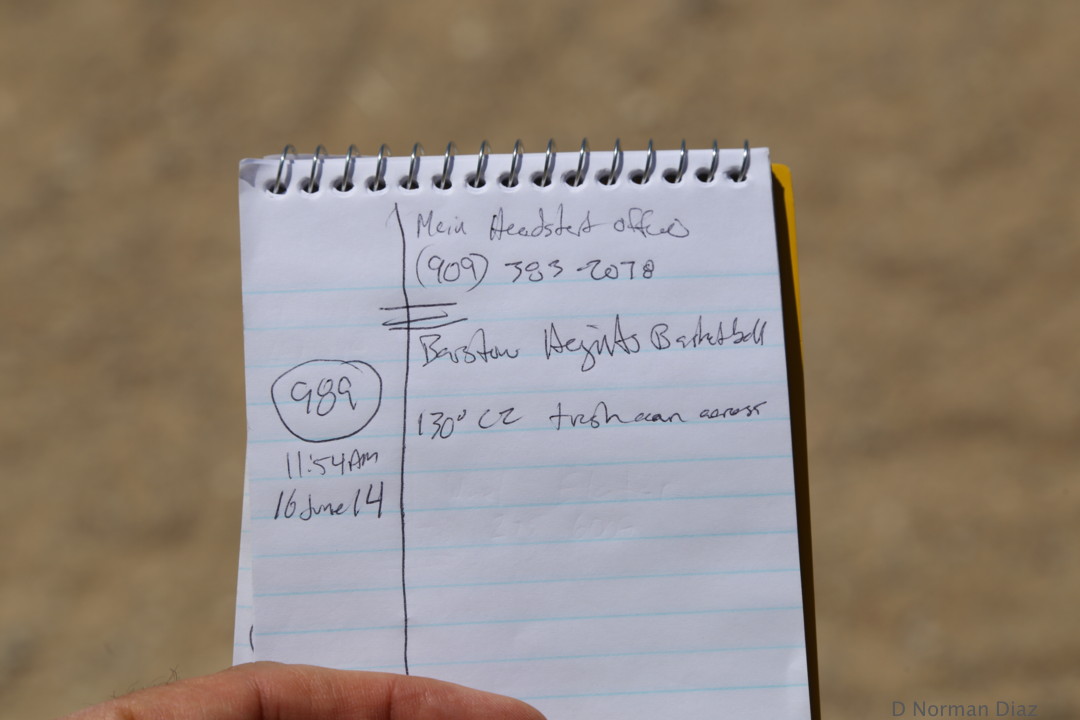 Main Headstart offices
(909) 383-2078
Barstow Heights Basketball
989
130° CZ trash can across
11:54AM
16 June 14
D Norman Diaz